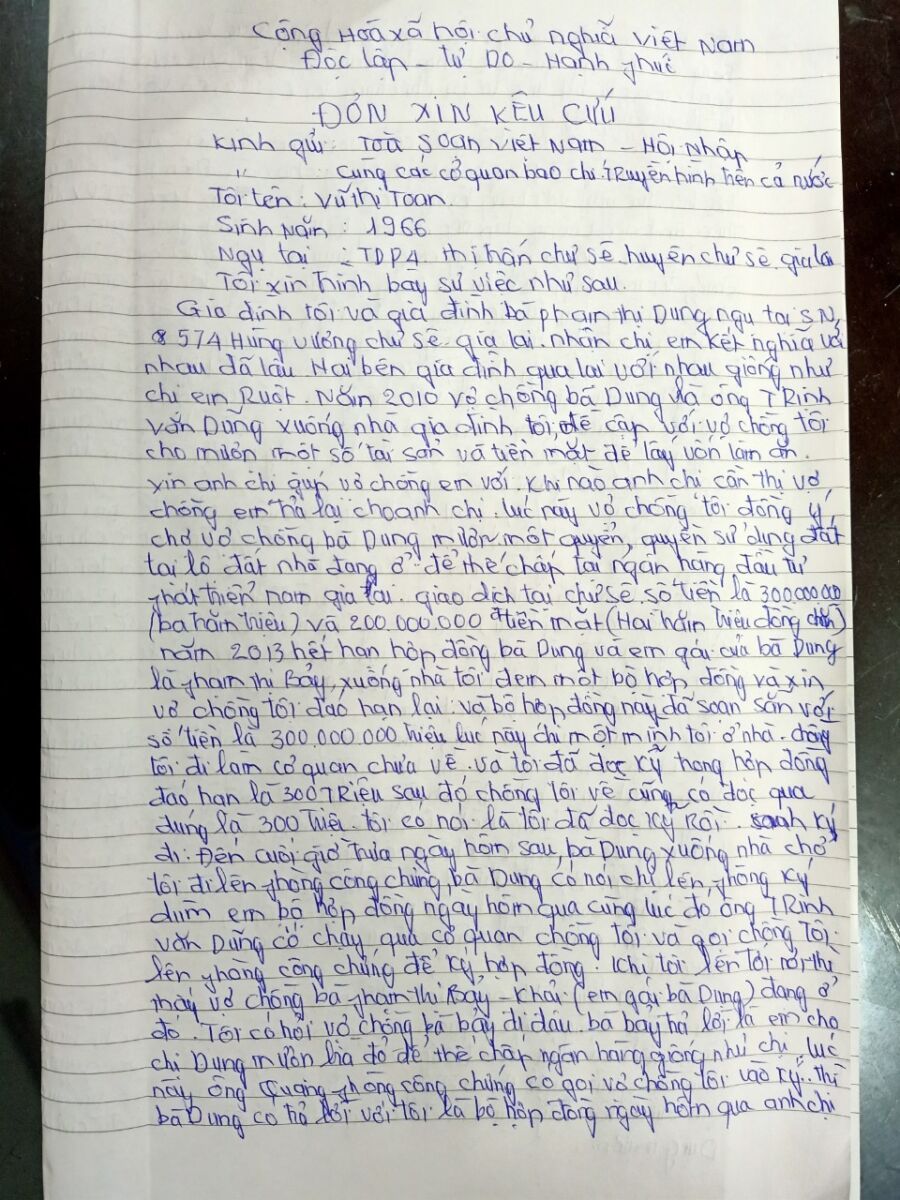 Cộng Hoà xã hội chủ nghĩa việt Nam
Độc lập - Tự Do - Hạnh phúc
ĐỚN XIN KÊU CỨU
Kính gửi : Toà Soạn việt Nam - Hội Nhập
" cùng các cở quan báo chí. TRuyền hình trên cả nước
Tôi tên : Vũ Thị Toan.
Sinh Năm : 1966
Ngụ tại : TDP4 thị trấn chư sê huyện chư sê gia lai
Tôi xin trình bày sự việc như sau.
Gia đình tôi và gia đình bà phạm thị Dung ngụ tại SN
574 Hùng vương chư sê gia lai. nhận chị em kết nghĩa với
nhau đã lâu Hai bên gia đình qua lại với nhau giống như
chị em Ruột. Năm 2010 vợ chồng bà Dung là ông TRịnh
văn Dũng xuống nhà gia đình tôi, đề cập với vợ chồng tôi
cho mướn một số tài sản và tiền mặt để lấy vốn làm ăn.
xin anh chị giúp vợ chồng em với. Khi nào anh chị cần thì vợ
chồng em trả lại cho anh chị. lúc này vợ chồng tôi đồng ý,
cho vợ chồng bà Dung mướn một quyển, quyền sử dụng đất
tại lô đất nhà đang ở để thế chấp tại ngân hàng đầu tư
phát triển nam gia lai. giao dịch tại chư sê số tiền là 300.000.000
(ba trăm triệu) và 200.000.000 đ tiền mặt (Hai trăm triệu đồng chẵn)
năm 2013 hết hạn hộp đồng bà Dung và em gái của bà Dung
là phạm thị Bảy, xuống nhà tôi đem một bộ hợp đồng và xin
vợ chồng tôi đáo hạn lại. và bộ hợp đồng này đã soạn sẵn với
số tiền là 300.000.000 triệu lúc này chỉ một mình tôi ở nhà. chồng
tôi đi làm cở quan chưa về. và tôi đã đọc kỹ trong hợp đồng
đáo hạn là 300 TRiệu sau đó chồng tôi về cũng có đọc qua
đúng là 300 Triệu. tôi có nói là tôi đã đọc kỹ Rồi. anh ký
đi. Đến cuối giờ trưa ngày hôm sau, bà Dung xuống nhà chở
tôi đi lên phòng công chứng, bà Dung có nói chị lên, phòng ký
dùm em bộ hợp đồng ngày hôm qua cùng lúc đó ông TRịnh
văn Dũng có chạy qua cở quan chồng tôi và gọi chồng Tôi
lên phòng công chứng để ký, hợp đồng. Khi tôi lên tới nởi thì
thấy vợ chồng bà phạm thị Bảy - Khải (em gái bà Dung) đang ở
đó. Tôi có hỏi vợ chồng bà bảy đi đâu. bà bảy trả lời là em cho
chị Dung mướn bìa đỏ để thế chấp ngân hàng giống như chị, lúc
này ông Quang phòng công chứng có gọi vợ chồng tôi vào ký. thì
bà Dung có trả lời với tôi là bộ hợp đồng ngày hôm qua anh chị